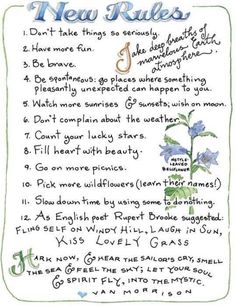 New Rules.
1. Don't take things so seriously.
2. Have more fun.
3. Be brave.
Take deep breaths of
marvelous Earth
atmosphere
4. Be spontaneous: go places where something
pleasantly unexpected can happen to you.
5. Watch more sunrises & sunsets; wish on moon.
6. Don't complain about the weather.
7. Count your lucky stars.
8. Fill heart with beauty.
9. Go on more picnics.
NETTLE-
LEAVED
BELLFLOWER
10. Pick more wildflowers (learn their names!)
11. Slow down time by using some to do nothing.
12. As English poet Rupert Brooke suggested:
FLING SELF ON WINDY HILL, LAUGH IN SUN,
KISS LOVELY GRASS
HARK NOW, & HEAR THE SAILOR'S CRY, SMELL
THE SEA & FEEL THE SKY; LET YOUR SOUL
& SPIRIT FLY, INTO THE MYSTIC.
VAN MORRISON